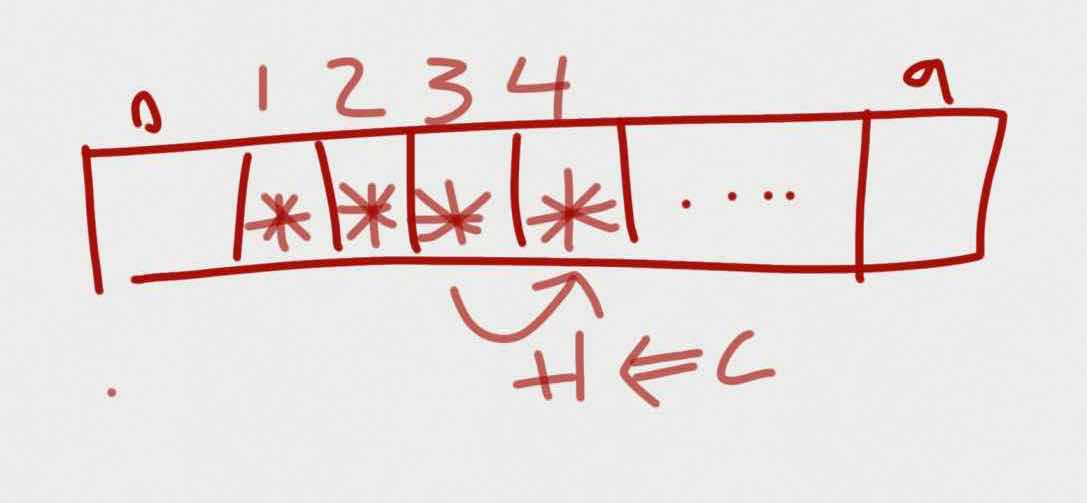 0 1 2 3 4 9
* * * * ....
H ⇐ C